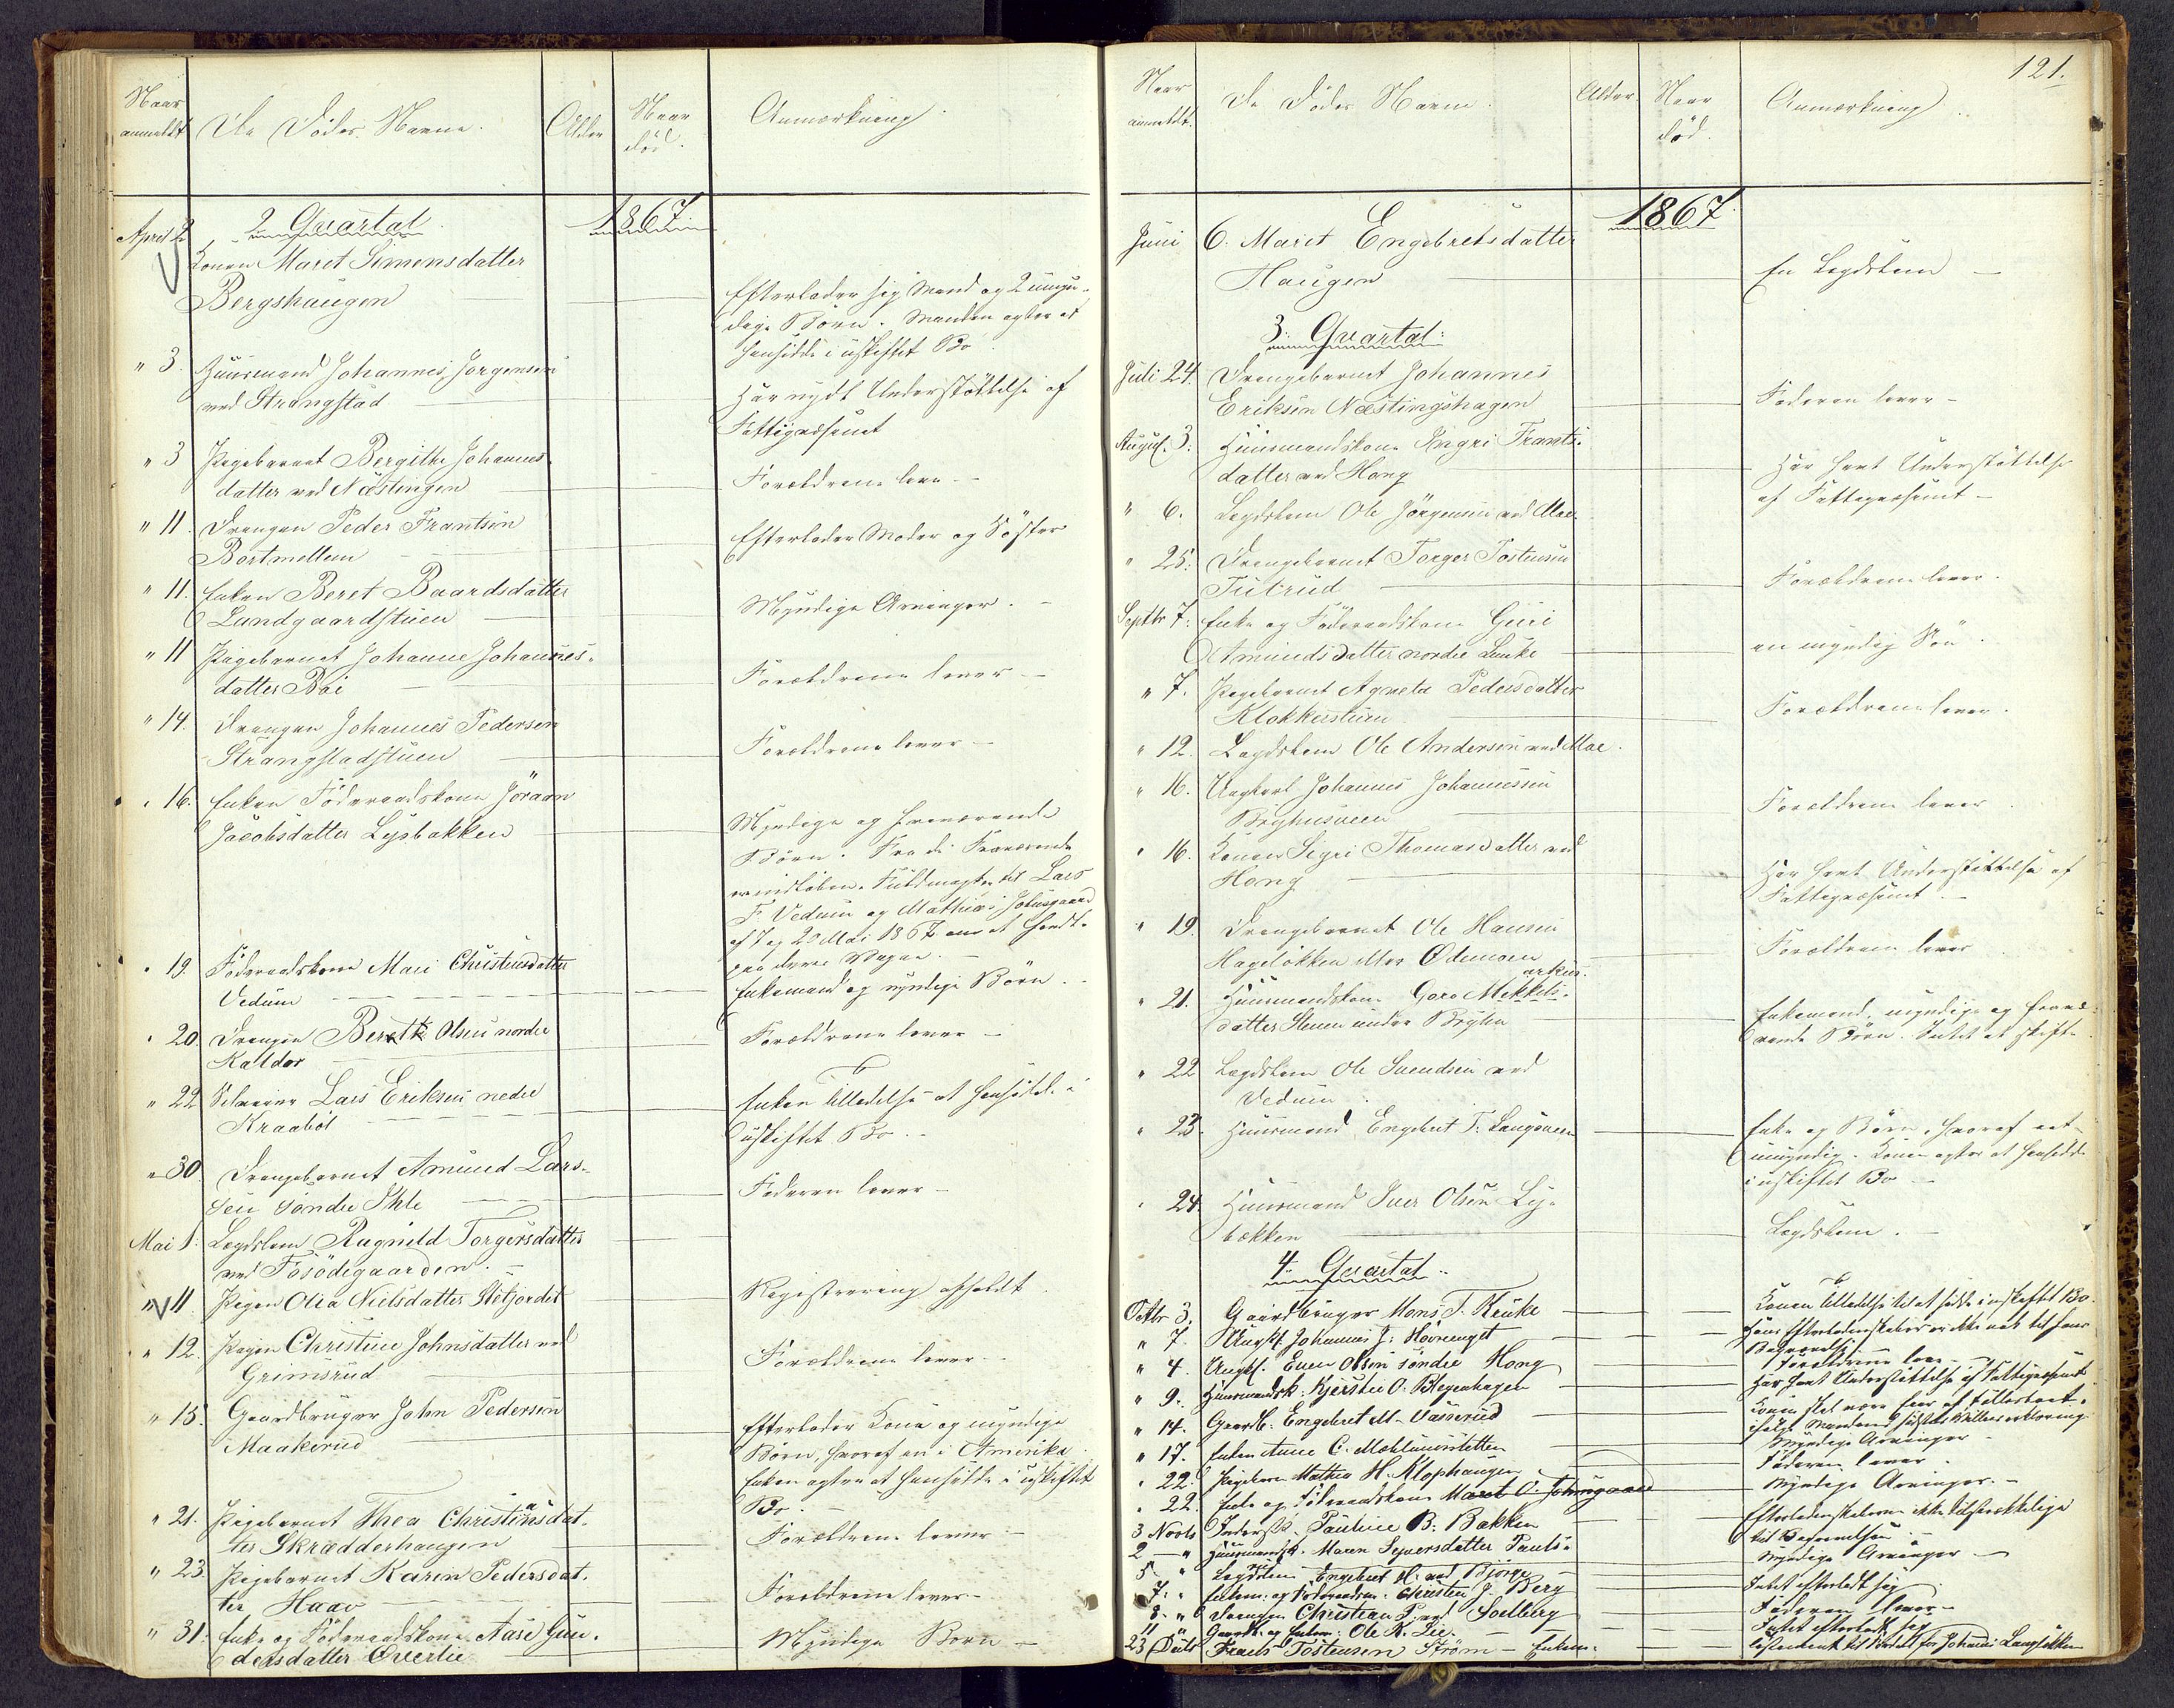 Naar anmeldt
De Dødes Navne.
Alder
Naar død.
Anmærkning
2 Quartal 1867.
April 2. Konen Maret Simensdatter
Bergshaugen
Efterlader sig Mand og 2 umyn-
dige Børn. Manden agter at
hensidde i uskiftet Bo
" 3. Huusmand Johannes Jørgensen
ved Strangstad
Har nydt Understøttelse af
Fattigvæsenet
" 3 Pigebarnet Bergithe Johannes-
datter ved Næstingen
Forældrene leve -
" 11. Drengen Peder Frantsen
Bostmellem
Efterlader Moder og Søster
" 11. Enken Beret Baardsdatter
Lundgaardstuen
Myndige Arvinger. -
" 11 Pigebarnet Johanne Johannes-
datter Bøe
Forældrene lever -
" 14. Drengen Johannes Pedersen
Strangstadstuen
Forældrene lever -
" 16. Enken Føderaadskone Jøraan
Jacobsdatter Lysbakken
Myndige og fraværende
Børn. Fra de Fraværende
er indløben Fuldmagt til Lars
F. Veduin og Mathias Johnsgaard
af 7 og 20 Mai 1867 om at handle
paa deres Vegne.
" 19. Føderaadskone Mari Christensdatter
Vedum
Enkemand og myndige Børn.
" 20. Drengen Berett Olsen nordre
Kaldor
Forældrene lever -
" 22 Selveier Lars Eriksen nedre
Kraabøl
Enken Tilladelse at hensidde i
uskiftet Bo. -
" 30. Drengebarnet Amund Lars-
sen søndre Ihle
Faderen lever -
Mai 1. Lægdslem Ragnild Torgersdatter
ved Fosødegaarden. -
" 11. Pigen Olia Nielsdatter Sletjordet
Registrering afholdt.
" 12. Pigen Christine Johnsdatter ved
Grimsrud
Forældrene lever -
" 15. Gaardbruger John Pedersen
Maakerud
Efterlader Kone og myndige
Børn, hvoraf en i Amerika.
Enken agter at hensidde i uskiftet
Bo. -
" 21. Pigebarnet Thea Christensdat-
ter Skrædderhaugen
Forældrene lever -
" 23 Pigebarnet Karen Pedersdat-
ter Haav
Forældrene lever -
" 31. Enke og Føderaadskone Aase Gun-
dersdatter Øverlie
Myndige Børn -
121.
Naar anmeldt.
De Dødes Navne.
Alder.
Naar død.
Anmærkning
1867.
Juni 6. Maret Engebretsdatter
Haugen
En Lægdslem -
3. Quartal:
Juli 24. Drengebarnet Johannes
Eriksen Næstingshagen
Faderen lever -
August 3. Huusmandskone Ingri Frants-
datter ved Hong
Har havt Understøttelse
af Fattigvæsenet -
" 6. Lægdslem Ole Jørgensen ved Moe.
" 25. Drengebarnet Torger Tostensen
Tutrud
Forældrene lever.
Septbr 7. Enke og Føderaadskone Guri
Amundsdatter nordre Lunke
en myndig Søn.
" 7. Pigebarnet Agneta Pedersdatter
Klokkerstuen
Forældrene lever.
" 12. Lægdslem Ole Andersen ved Moe.
" 16. Ungkarl Johannes Johannessen
Bryhusveen
Forældrene lever.
" 16. Konen Sigri Thomasdatter ved
Hong
Har havt Understøttelse af
Fattigvæsenet. -
" 19. Drengebarnet Ole Hansen
Hageløkken Moe Ødemoen
Forældrene lever
" 21. Huusmandskone Goro Mikkels-
datter Steuen under Bryhn
Enkemand, myndige og fravæ-
rende Børn. Intet at skifte.
" 22 Lægdslem Ole Svendsen ved
Vedum.
" 23. Huusmand Engebret T. Langsveen
Enke og Børn, hvoraf eet
umyndig. Konen agter at hensidde
i uskiftet Bo -
" 24. Huusmand Iver Olsen Ly-
bækken
Lægdslem. -
4. Quartal.
Octbr 3. Gaardbruger Mons T. Kruke
Konen Tilladelse til at sidde i uskiftet Bo.
" 7. Ungk. Johannes J. Høvrenget
Hans Efterladenskaber er ikke nok til hans
Begravelse
" 4. Ungk. Even Olsen søndre Hong
Forældrene leve -
" 9. Huusmandsk. Kjersten O. Blegenhagen
Har havt Understøttelse af Fattigvæsenet
" 14. Gaardb. Engebret M. Vasserud
" 17. Enken Anne C. Mæhlumsletten
Myndige Arvinger -
" 22. Pigebarn Mathea H. Klophaugen
Faderen lever.
" 22. Enke og Føderaadskone Maret O. Johnsgaard
Myndige Arvinger. -
3 Novbr Inderst. Pauline B. Bakken
Efterladenskaberne ikke tilstrækkelige
til Begravelsen. -
2 - " Huusmandsk. Maren Syversdatter Pauls-
rud
Myndige Arvinger -
5 - " Lægdslem Engebret H. ved Bjørge
7. " Enkem. og Føderaadsm. Christen J. Berg
Intet efterladt sig
8. " Drengen Christian P. ved Solberg
Faderen lever -
11 " Gaardb. og Enkem. Ole K. Lie.
Intet efterladt sig
23 Dets Frants Tostensen Strøm - Enkem.